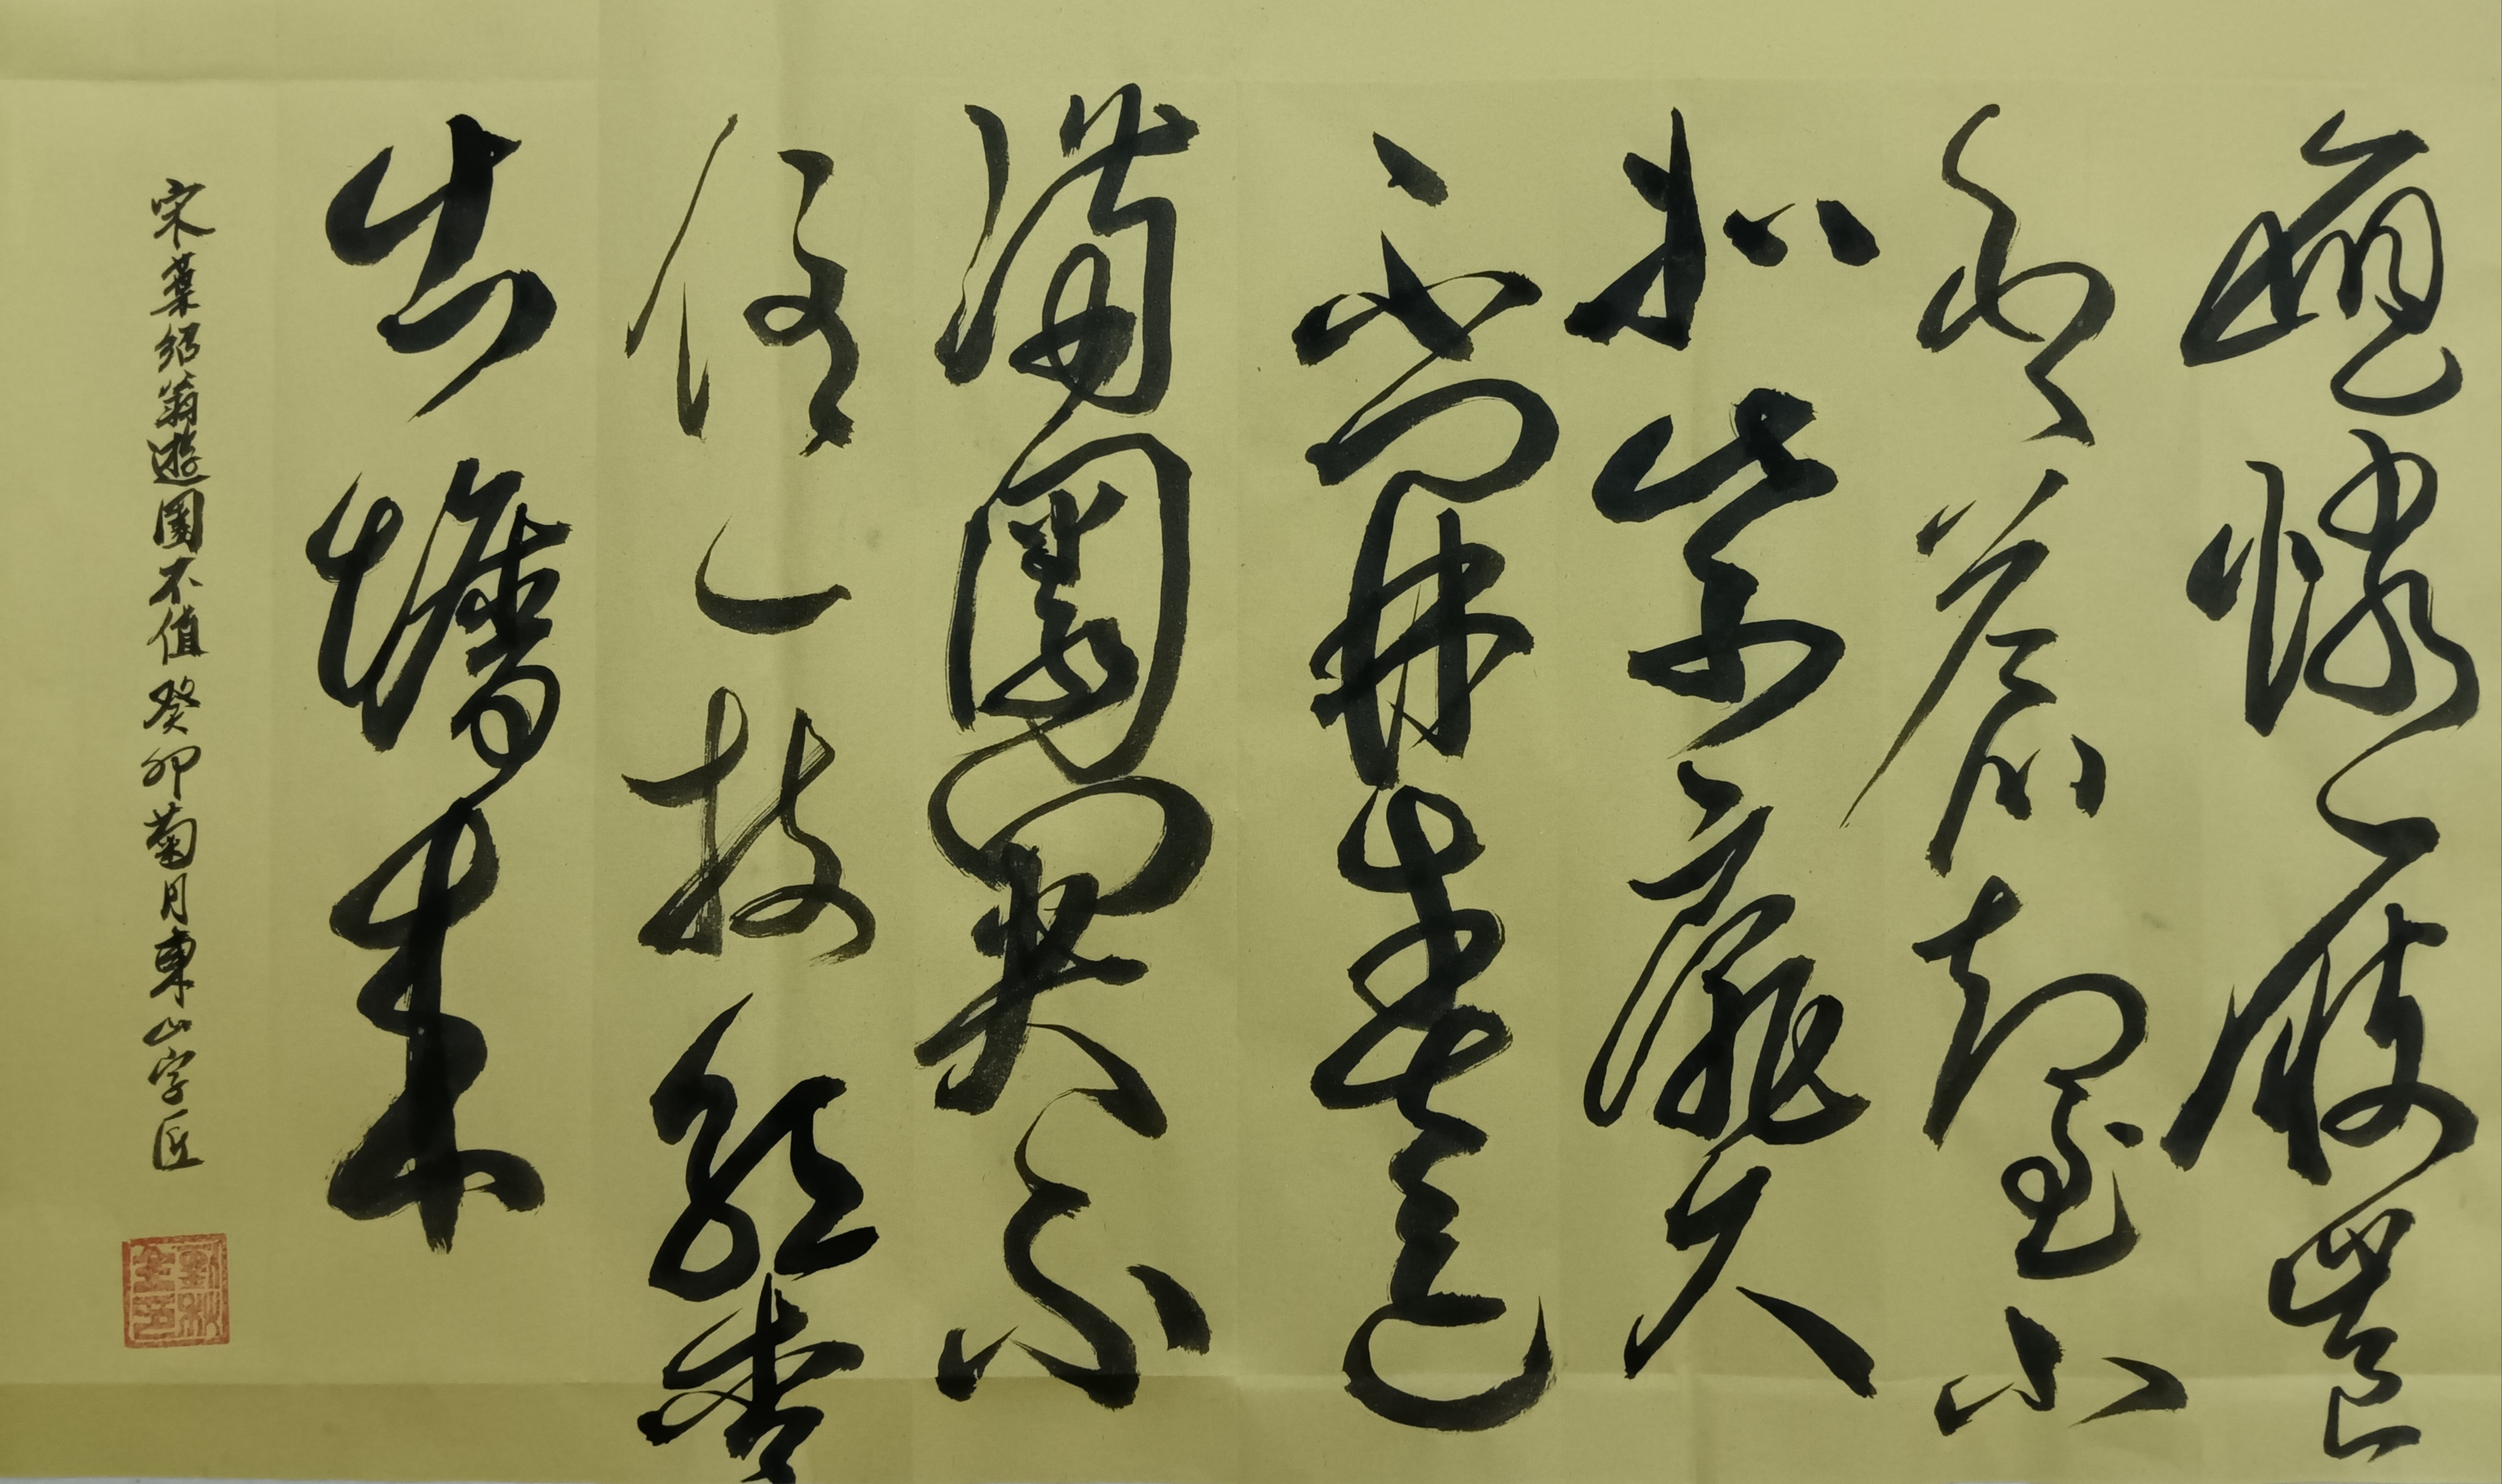 應憐屐齒
印蒼苔小
扣柴扉久
不開春色
滿園關不
住一枝紅杏
出牆來
宋葉紹翁遊園不值 癸卯菊月東山字匠
劉秋全印